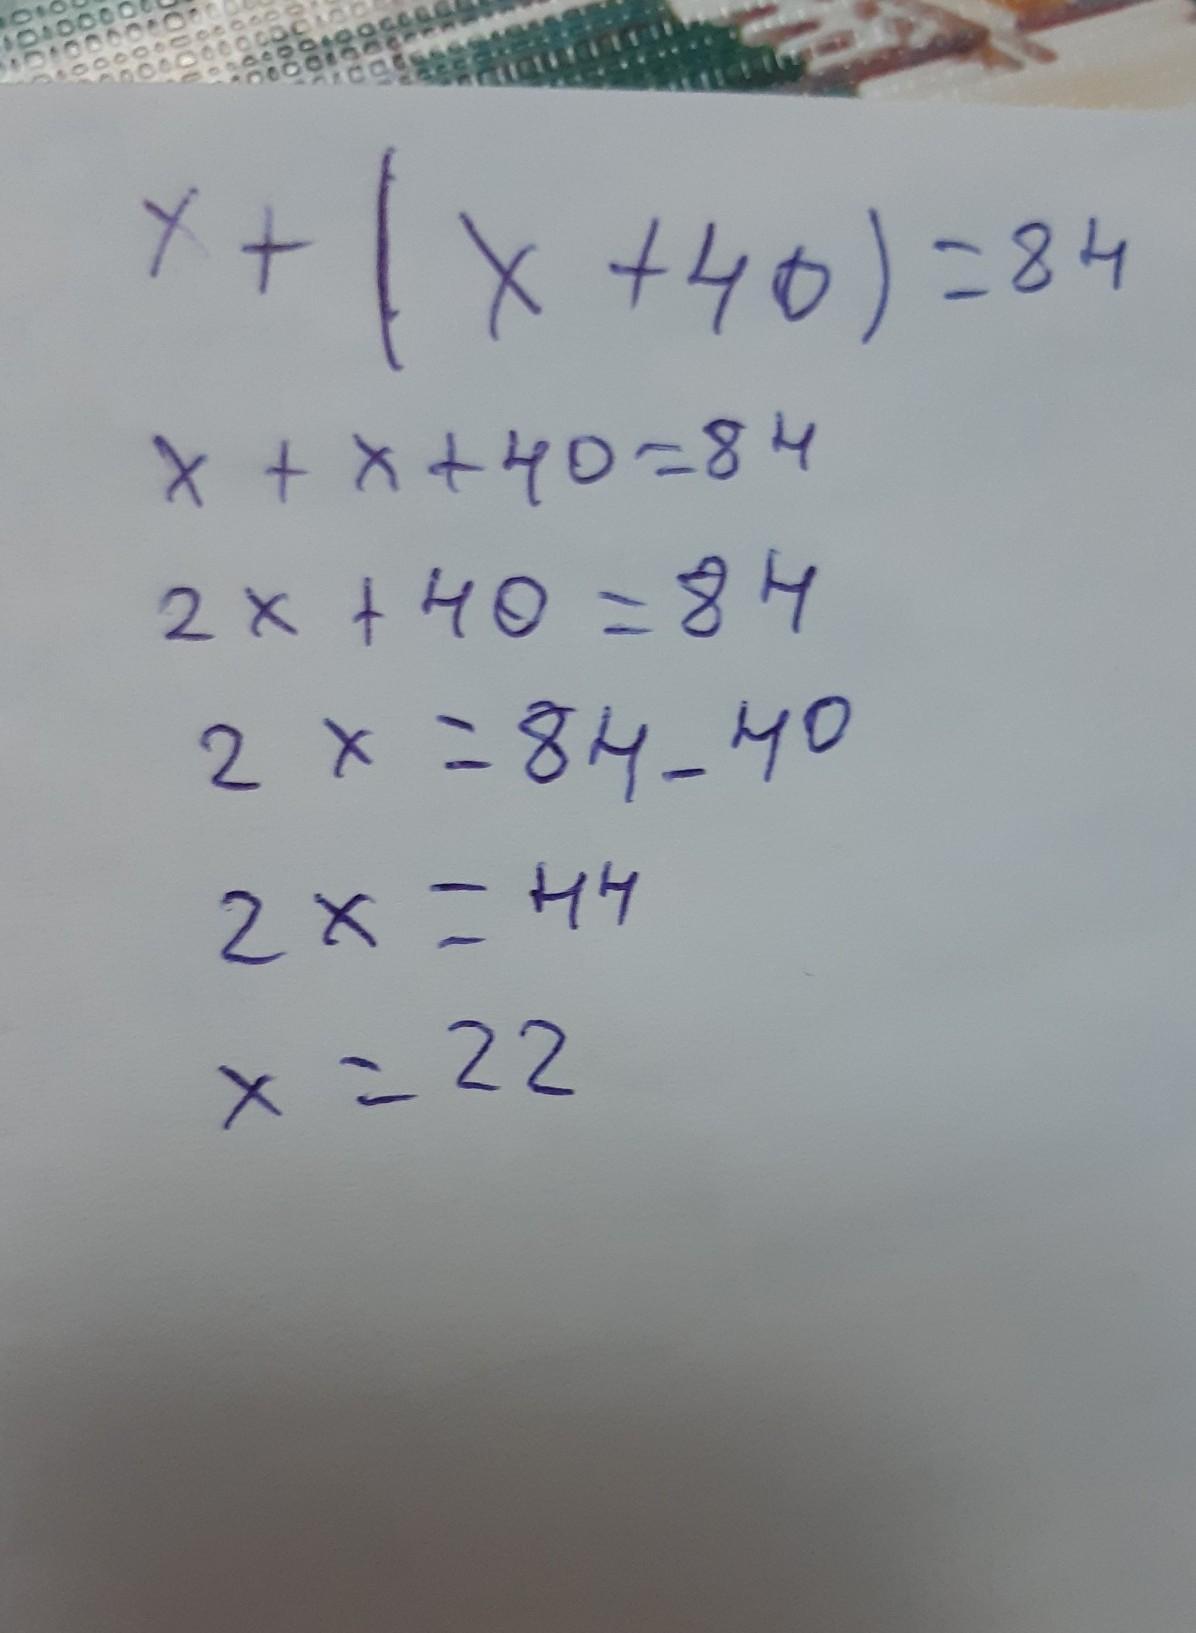 x + (x + 40) = 84
x + x + 40 = 84
2x + 40 = 84
2x = 84 - 40
2x = 44
x = 22